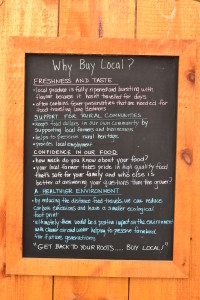 Why Buy Local?
FRESHNESS AND TASTE
• local produce is fully ripened and bursting with
flavour because it hasn't travelled for days
• often contains fewer preservatives that are needed for
food travelling long distances
SUPPORT FOR RURAL COMMUNITIES
• keeps food dollars in our own community by
supporting local farmers and businesses
• helps to preserve rural heritage
• provides local employment
CONFIDENCE IN OUR FOOD
• how much do you know about your food?
• your local farmer takes pride in high quality food
that's safe for your family and who else is
better at answering your questions than the grower?
A HEALTHIER ENVIRONMENT
• by reducing the distance food travels we can reduce
carbon emissions and have a smaller ecological
foot print
• ultimately there would be a positive impact on the environment
with cleaner air and water helping to preserve farmland
for future generations
"GET BACK TO YOUR ROOTS.... BUY LOCAL!"